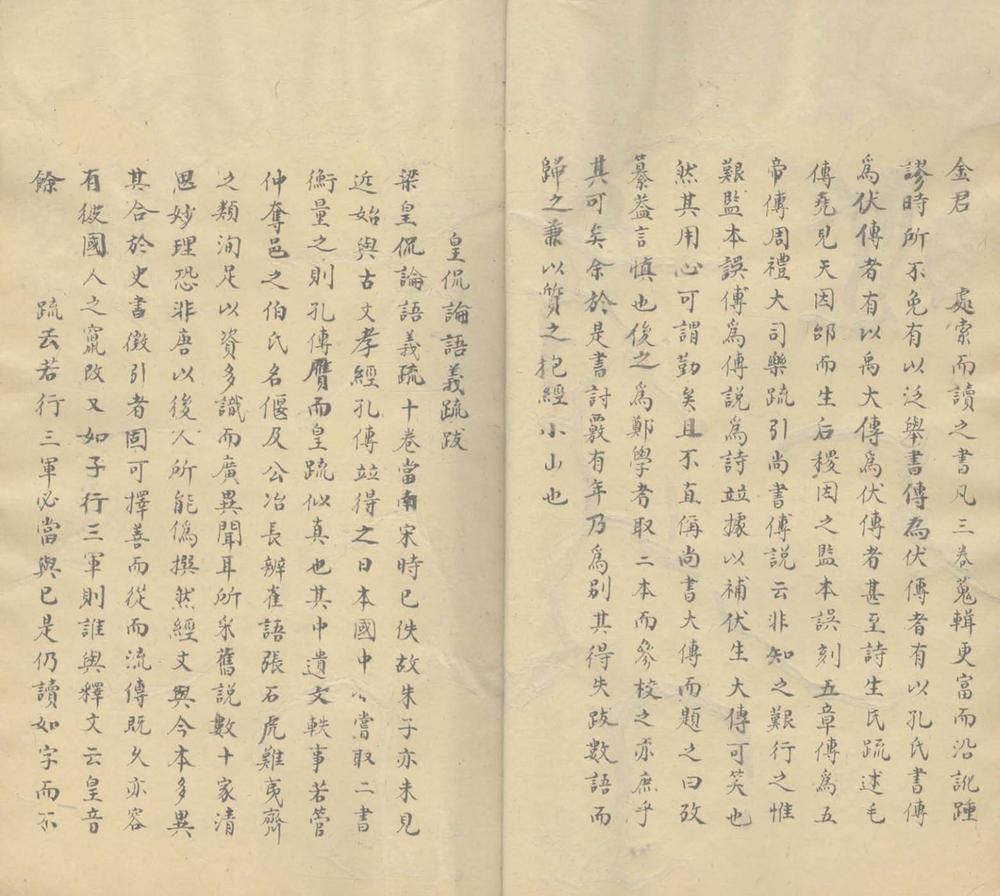 金君 處索而讀之書凡三卷蒐輯更富而沿訛踵
謬時所不免有以泛舉書傳為伏傳者有以孔氏書傳
爲伏傳者有以禹大傳爲伏傳者甚至詩生民疏述毛
傳堯見天因邰而生后稷因之監本誤刻五章傳爲五
帝傳周禮大司樂疏引尚書傅說云非知之艱行之惟
艱監本誤傅爲傳說爲詩竝據以補伏生大傳可笑也
然其用心可謂勤矣且不直稱尚書大傳而題之曰攷
纂葢言慎也後之爲鄭學者取二本而參校之亦庶乎
其可矣余於是書討覈有年乃爲別其得失跋數語而
歸之兼以質之抱經小山也
皇侃論語義疏跋
梁皇侃論語義疏十卷當南宋時已佚故朱子亦未見
近始與古文孝經孔傳竝得之日本國中嘗取二書
衡量之則孔傳贗而皇疏似真也其中遺文軼事若管
仲奪邑之伯氏名偃及公冶長辨雀語張石虎難夷齊
之類洵足以資多識而廣異聞耳所采舊說數十家清
思妙理恐非唐以後人所能僞撰然經文與今本多異
其合於史書徵引者固可擇善而從而流傳既久亦容
有彼國人之竄改又如子行三軍則誰與釋文云皇音
餘 疏云若行三軍必當與已是仍讀如字而不